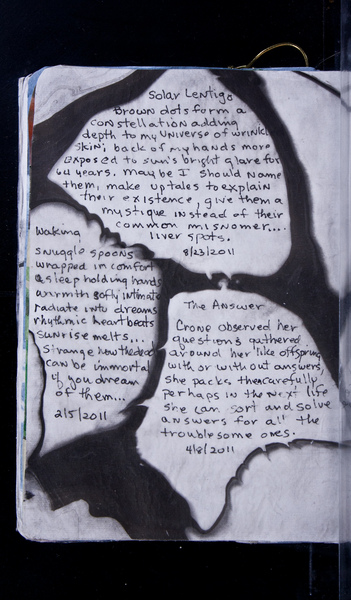 Solar Lentigo
Brown dots form a
constellation adding
depth to my universe of wrinkl
skin; back of my hands more
exposed to sun's bright glare for
64 years. Maybe I should name
them, make up tales to explain
their existence, give them a
mystique instead of their
common misnomer....
liver spots.
8/23/2011
Waking
snuggle spoons
wrapped in comfort
asleep holding hands
warmth softly intimate
radiate into dreams
rhythmic heartbeats
sunrise melts...
strange how the dead
can be immortal
if you dream
of them...
2/5/2011
The Answer
Crone observed her
questions gathered
around her like offspring
with or without answers,
she packs them carefully
perhaps in the next life
she can sort and solve
answers for all the
troublesome ones.
4/8/2011